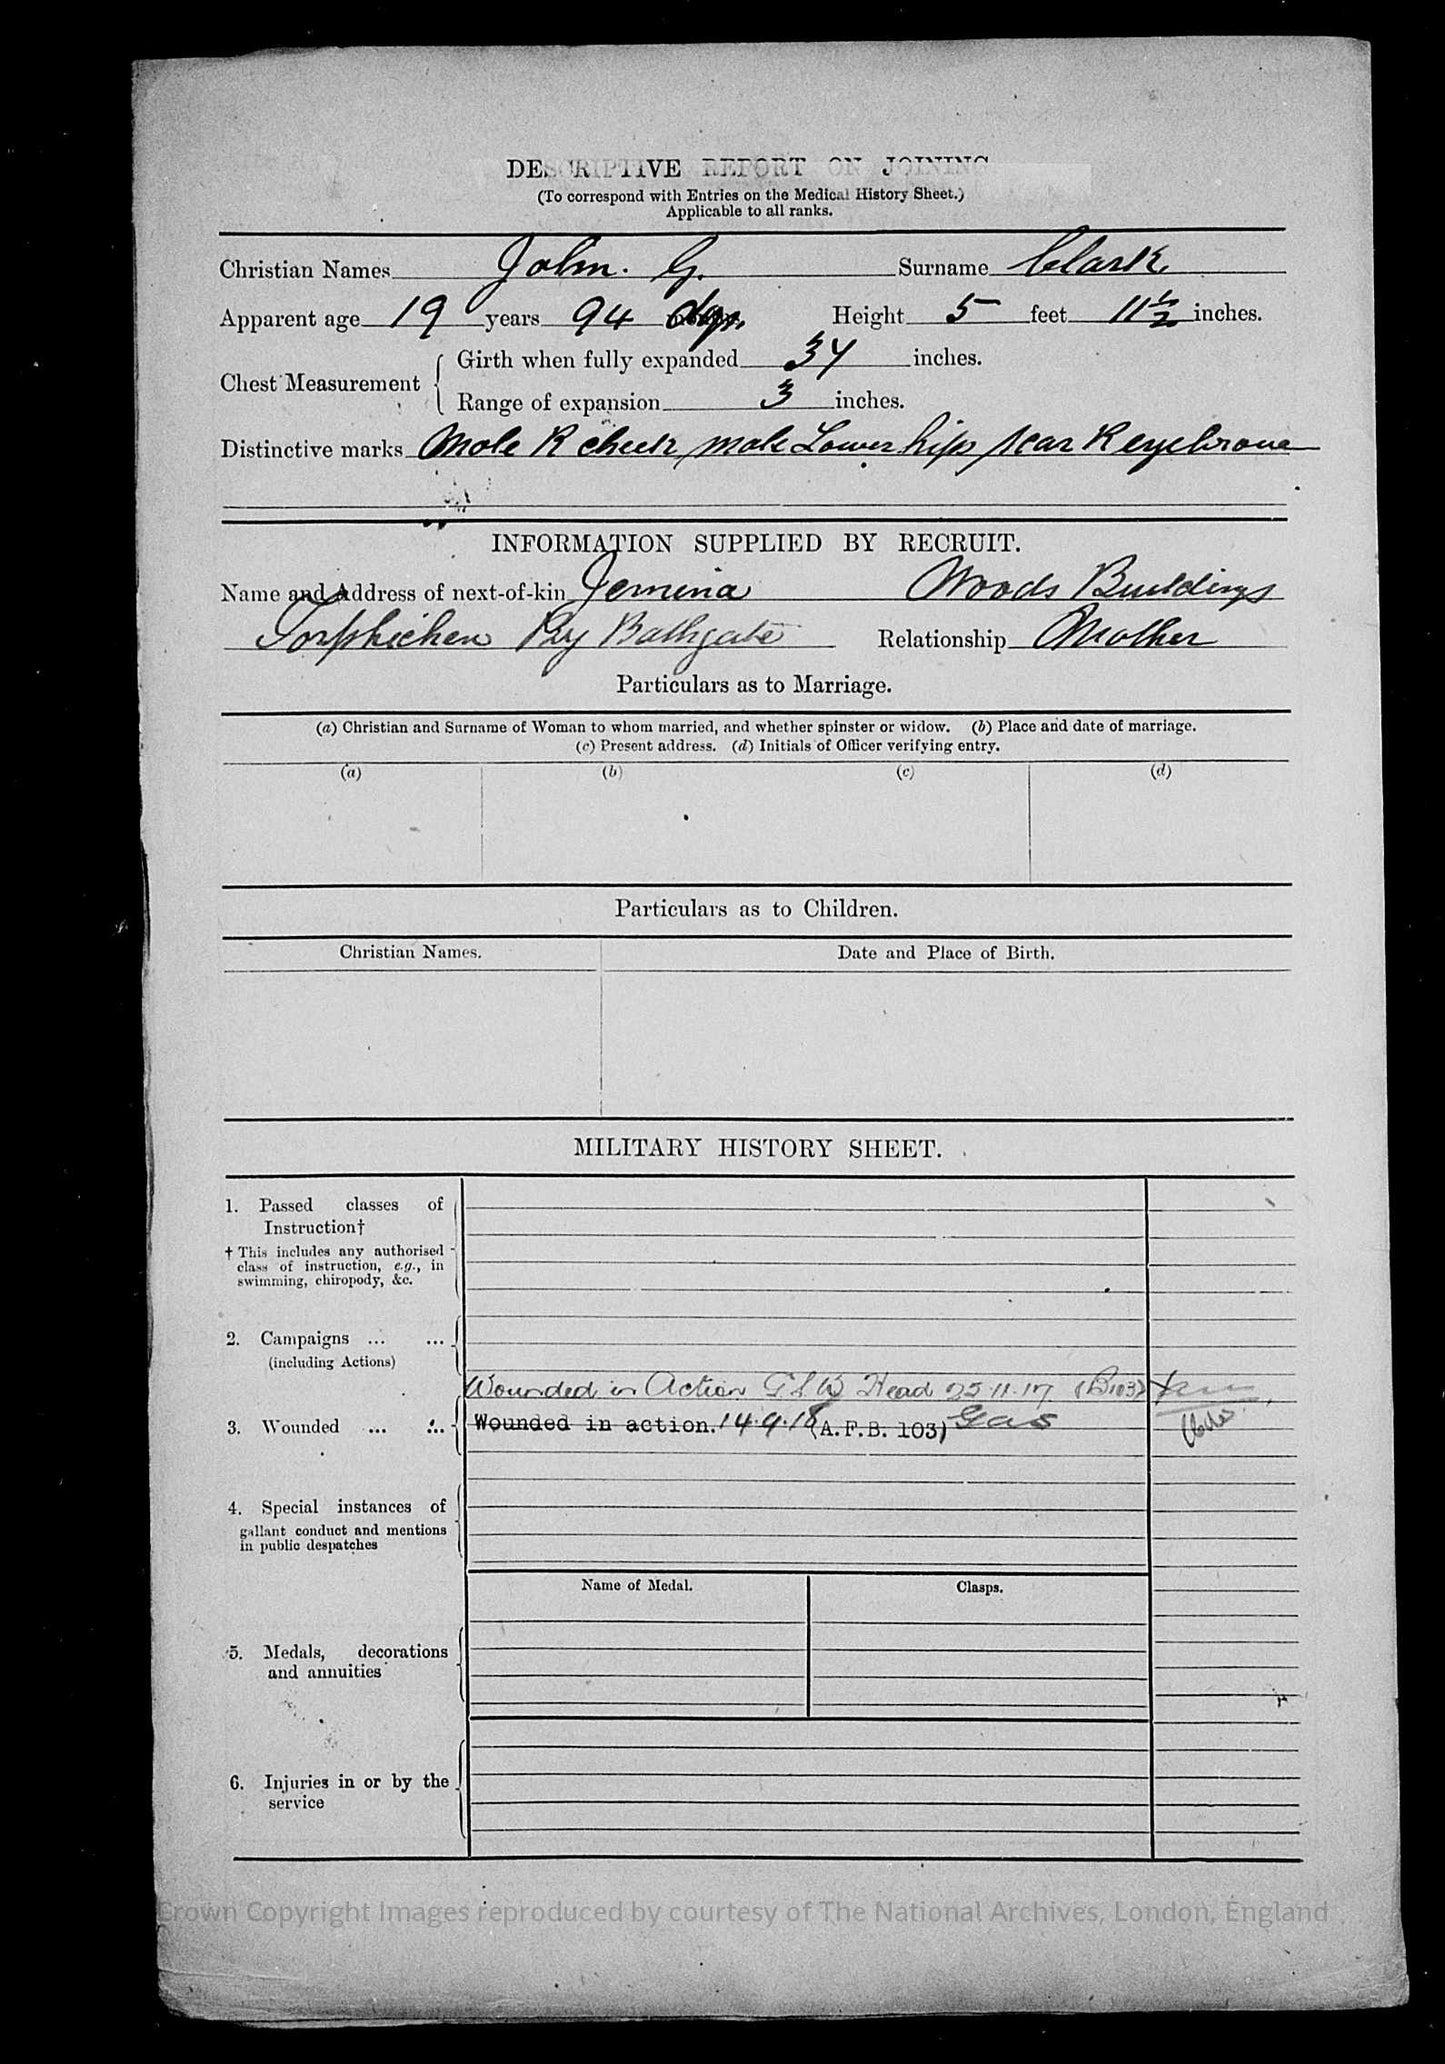 DESCRIPTIVE REPORT ON JOINING
(To correspond with Entries on the Medical History Sheet.)
Applicable to all ranks.
Christian Names John. G. Surname Clark
Apparent age 19 years 94 dys. Height 5 feet 11½ inches.
Chest Measurement { Girth when fully expanded 34 inches.
Range of expansion 3 inches.
Distinctive marks Mole R cheek, mole Lower hip scar R eyebrow
INFORMATION SUPPLIED BY RECRUIT.
Name and Address of next-of-kin Jemina Woods Buildings
Torphichen By Bathgate Relationship Mother
Particulars as to Marriage.
(a) Christian and Surname of Woman to whom married, and whether spinster or widow. (b) Place and date of marriage.
(c) Present address. (d) Initials of Officer verifying entry.
(a) (b) (c) (d)
Particulars as to Children.
Christian Names. Date and Place of Birth.
MILITARY HISTORY SHEET.
1. Passed classes of
Instruction†
† This includes any authorised
class of instruction, e.g., in
swimming, chiropody, &c.
2. Campaigns ... ...
(including Actions)
Wounded in Action G.S.W Head 25.11.17 (B103)
3. Wounded ... ... Wounded in action. 14.9.18 (A.F.B. 103) Gas
4. Special instances of
gallant conduct and mentions
in public despatches
Name of Medal. Clasps.
5. Medals, decorations
and annuities
6. Injuries in or by the
service
Crown Copyright Images reproduced by courtesy of The National Archives, London, England